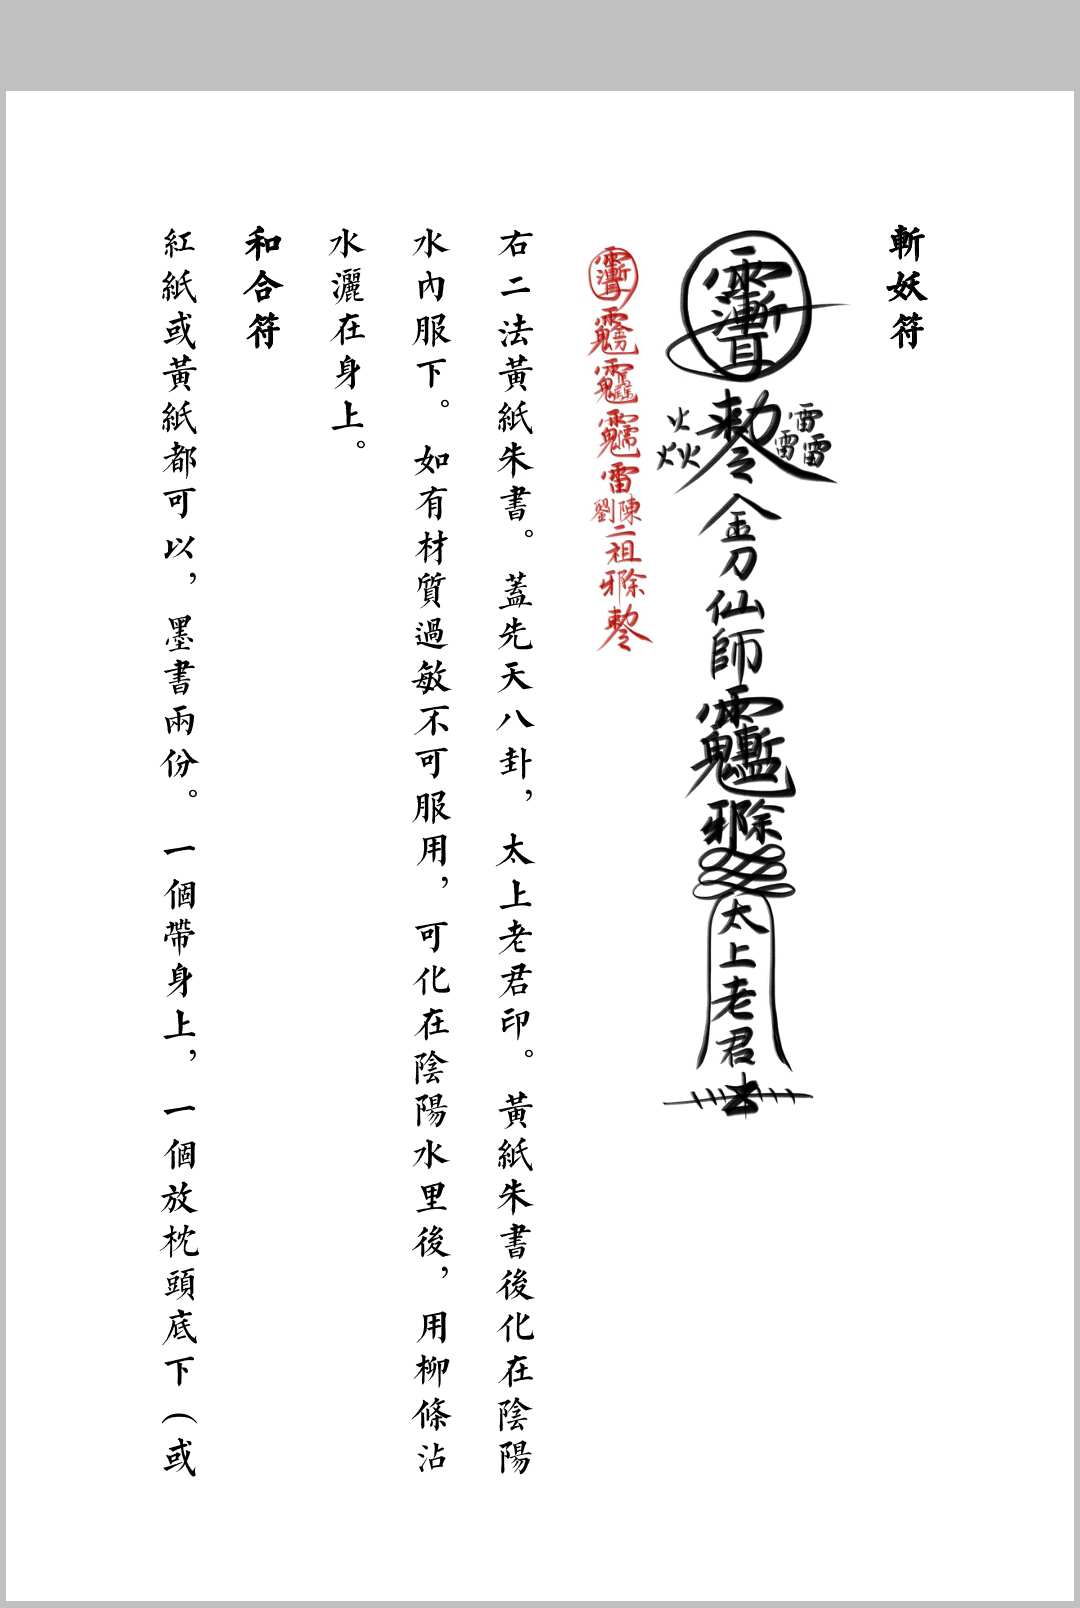 斬妖符
勅
雷
雷雷
火
火火
金刀仙師
太上老君
雷
陳劉
二祖
勅
右二法黃紙朱書。蓋先天八卦，太上老君印。黃紙朱書後化在陰陽
水內服下。如有材質過敏不可服用，可化在陰陽水里後，用柳條沾
水灑在身上。
和合符
紅紙或黃紙都可以，墨書兩份。一個帶身上，一個放枕頭底下（或